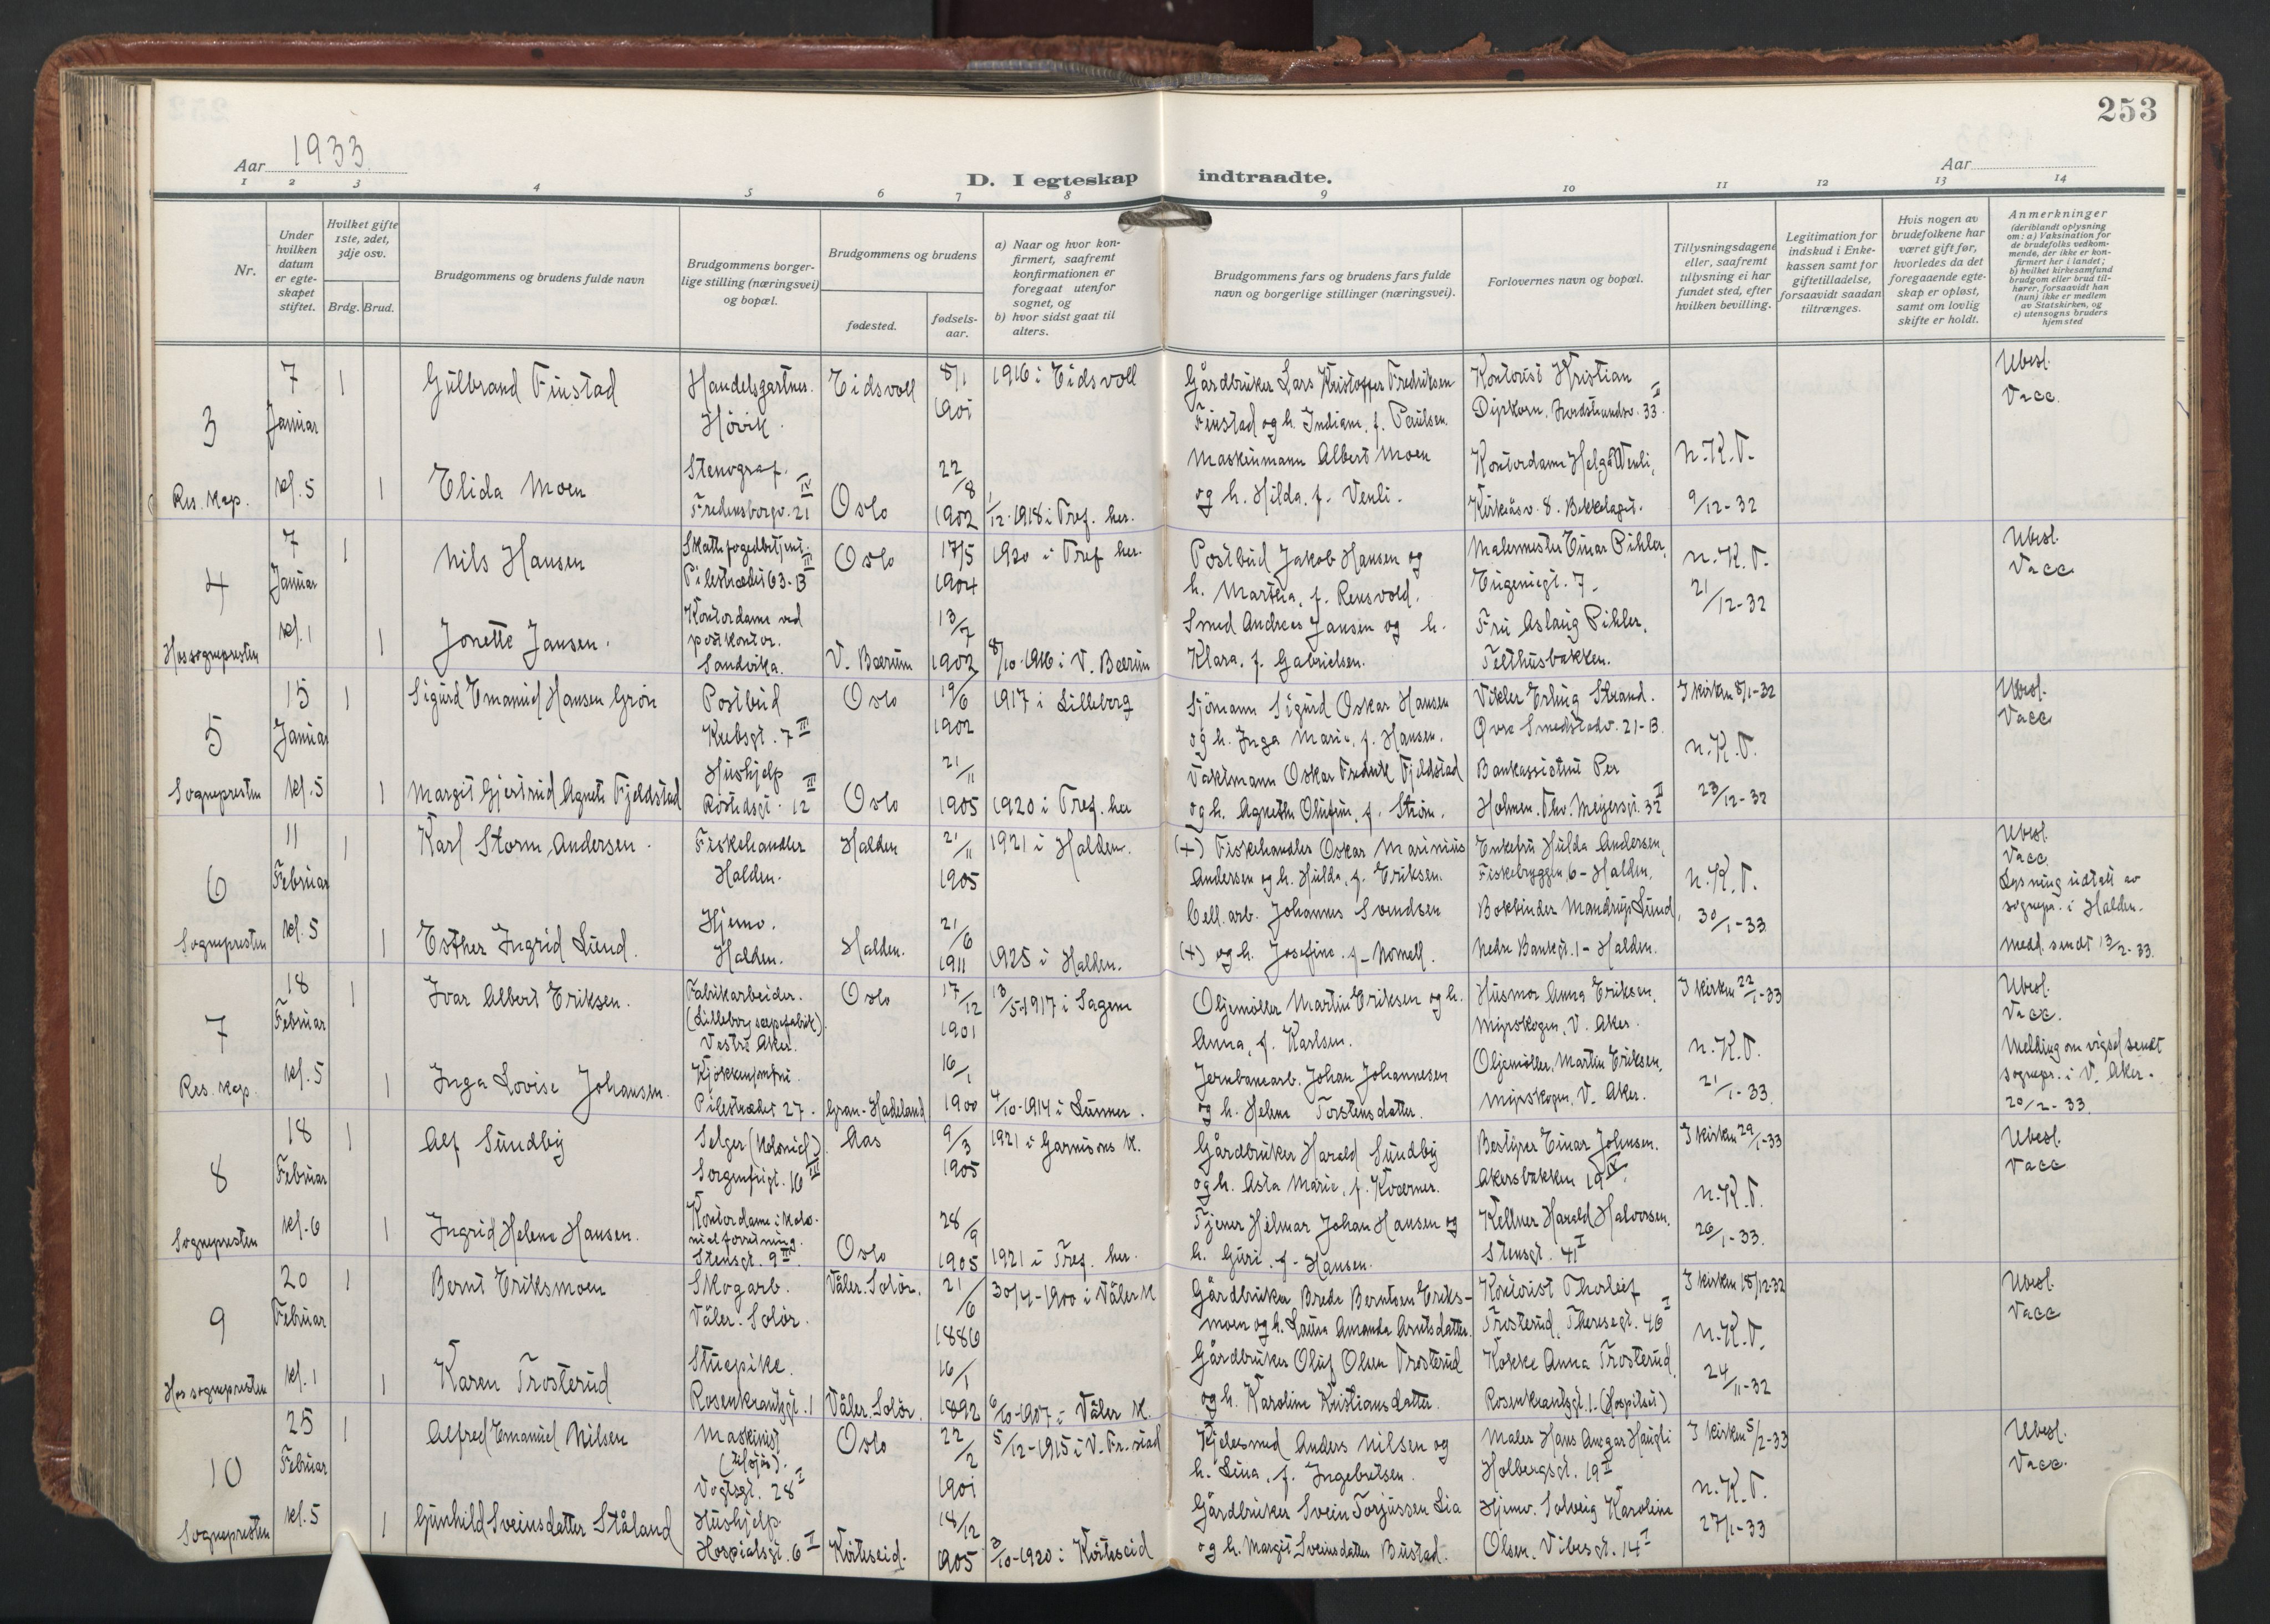 253
Aar 1933
Aar
D. I egteskap indtraadte.
1 2 3 4 5 6 7 8 9 10 11 12 13 14
Nr.
Under hvilken datum er egteskapet stiftet.
Hvilket gifte 1ste, 2det, 3dje osv.
Brdg. Brud.
Brudgommens og brudens fulde navn
Brudgommens borgerlige stilling (næringsvei) og bopæl.
Brudgommens og brudens
fødested.
fødselsaar.
a) Naar og hvor konfirmert, saafremt konfirmationen er foregaat utenfor sognet, og
b) hvor sidst gaat til alters.
Brudgommens fars og brudens fars fulde navn og borgerlige stillinger (næringsvei).
Forlovernes navn og bopæl.
Tillysningsdagene eller, saafremt tillysning ei har fundet sted, efter hvilken bevilling.
Legitimation for indskud i Enkekassen samt for giftetilladelse, forsaavidt saadan tiltrænges.
Hvis nogen av brudefolkene har været gift før, hvorledes da det foregaaende egteskap er opløst, samt om lovlig skifte er holdt.
Anmerkninger (deriblandt oplysning om: a) Vaksination for de brudefolks vedkommende, der ikke er konfirmert her i landet; b) hvilket kirkesamfund brudgom eller brud tilhører, forsaavidt han (hun) ikke er medlem av Statskirken, og c) utensogns bruders hjemsted
3
7 Januar kl. 5
Res. kap.
1 Gulbrand Finstad
Handelsgartner. Høvik.
Eidsvoll
8/1 1901
1916 i Eidsvoll
Gårdbruker Lars Kristoffer Fredriksen
Finstad og h. Indiane, f. Paulsen.
Kontorist Kristian
Dyrkorn, Nordstrandsv. 33 II.
Ubesl.
Vacc.
1 Elida Moen
Stenograf.
Fredensborgv. 21 IV
Oslo
22/8 1902
1/12-1918 i Tref. her.
Maskinmann Albert Moen
og h. Hilda, f. Venli.
Kontordame Helga Venli,
Kirkeåsv. 8. Bekkelaget.
N.K.T.
9/12-32
4
7 Januar kl. 1
Hos sognepresten
1 Nils Hansen
Skattefogedbetjent.
Pilestrædet 63-B III
Oslo
17/5 1904
1920 i Tref her.
Postbud Jakob Hansen og
h. Marthea, f. Rensvold.
Malermester Einar Pihler,
Eugeniegt. 7.
N.K.T.
21/12-32
Ubesl.
Vacc
1 Jonette Jansen.
Kontordame ved
postkontor.
Sandvika.
V. Bærum
13/7 1902
8/10-1916 i V. Bærum
Smed Andreas Jansen og h.
Klara, f. Gabrielsen.
Fru Aslaug Pihler,
Telthusbakken.
5
15 Januar kl. 5
Sognepresten
1 Sigurd Emanuel Hansen Grøn
Postbud
Krebsgt. 7 III
Oslo
19/6 1902
1917 i Lilleborg
Sjømann Sigurd Oskar Hansen
og h. Inga Marie, f. Hansen.
Vikler Erling Strand.
Øvre Smedstadv. 21-B.
I kirken 8/1-32
N.K.T.
23/12-32
Ubesl.
Vacc
1 Margit Gjertrud Agnete Fjeldstad
Hushjelp
Rostedsgt. 12 III
Oslo
21/11 1905
1920 i Tref. her
Vaktmann Oskar Fredrik Fjeldstad
og h. Agnethe Olufine, f. Strøm.
Bankassistent Per
Holmen. Thv. Meyersgt. 32 II
6
11 Februar kl. 5
Sognepresten
1 Karl Storm Andersen.
Fiskehandler
Halden.
Halden
21/11 1905
1921 i Halden.
(+) Fiskehandler Oskar Marinius
Andersen og h. Hulda, f. Eriksen.
Enkefru Hulda Andersen,
Fiskebryggen, 6 - Halden,
N.K.T.
30/1-33
Ubesl.
Vacc.
Lysning udtatt av
sognepr. i Halden.
Medd. sendt 13/2-33.
1 Esther Ingrid Lund.
Hjemv.
Halden.
Halden.
21/6 1911
1925 i Halden.
Cell. arb. Johannes Svendsen
(+) og h. Josefine, f. Nomell.
Bokbinder Mandrup Lund,
Nedre Bankgt. 1 - Halden.
7
18 Februar kl. 5
Res. kap.
1 Ivar Albert Eriksen.
Fabrikarbeider.
(Lilleborg sæpefabrik).
Vestre Aker.
Oslo
17/12 1901
13/5-1917 i Sagene
Oljemøller Martin Eriksen og h.
Anna, f. Karlsen.
Husmor Anna Eriksen,
Myrskogen, V. Aker.
I kirken 22/1-33
N.K.T.
21/1-33.
Ubesl.
Vacc.
Melding om vigsel sendt
sognepr. i V. Aker.
20/2-33.
1 Inga Lovise Johansen.
Kjøkkenjomfru.
Pilestrædet 27.
Gran-Hadeland
16/1 1900
4/10-1914 i Lunner.
Jernbanearb. Johan Johannesen
og h. Helene Torstensdatter.
Oljemøller, Martin Eriksen,
Myrskogen, V. Aker.
8
18 Februar kl. 6
Sognepresten
1 Alf Sundby
Selger (Kolonial).
Sorgenfrigt. 16 III
Aas
9/3 1905
1921 i Garnisons K.
Gårdbruker Harald Sundby
og h. Asta Marie, f. Kværner.
Bestyrer Einar Johnsen.
Akersbakken 19 IV.
I kirken 29/1-33
N.K.T.
26/1-33.
Ubesl.
Vacc
1 Ingrid Helene Hansen.
Kontordame i kolo-
nialforretning.
Stensgt. 9 III.
Oslo
28/9 1905
1921 i Tref. her.
Tjener Hilmar Johan Hansen og
h. Guri, f. Hansen.
Kellner Harald Halvorsen,
Stensgt. 41 I
9
20 Februar kl. 1
Hos sognepresten
1 Bernt Eriksmoen
Skogarb.
Våler. Solør.
Våler. Solør.
21/6 1886
30/4-1900 i Våler K
Gårdbruker Brede Berntsen Eriks-
moen og h. Laura Amanda Arntsdatter.
Kontorist Thorleif
Trosterud, Theresegt. 46 I
I kirken 18/12-32
N.K.T.
24/11-32
Ubesl.
Vacc
1 Karen Trosterud
Stuepike.
Rosenkrantzgt. 1
Våler. Solør.
16/1 1892
6/10-1907 i Våler K.
Gårdbruker Oluf Olsen Trosterud
og h. Karoline Kristiansdatter.
Kokke Anna Trosterud,
Rosenkrantzgt. 1. (Hospitset)
10
25 Februar kl. 5
Sognepresten
1 Alfred Emanuel Nilsen
Maskinist
(tilsjøs).
Vogtsgt. 28 I
Oslo
22/2 1901
5/12-1915 i V. Fr.stad
Kjelesmed Anders Nilsen og
h. Lina, f. Ingebretsen.
Maler Hans Ansgar Haugli
Holbergsgt. 19 II
I kirken 5/2-33
N.K.T.
27/1-33
Ubesl.
Vacc.
1 Gunhild Sveinsdatter Ståland
Hushjelp.
Hospitalsgt. 6 I
Kviteseid.
18/12 1905
3/10-1920 i Kviteseid
Gårdbruker Svein Torjussen Lia
og h. Margit Sveinsdatter Bustad.
Hjemv. Solveig Karoline
Olsen, Vibesgt. 14 I